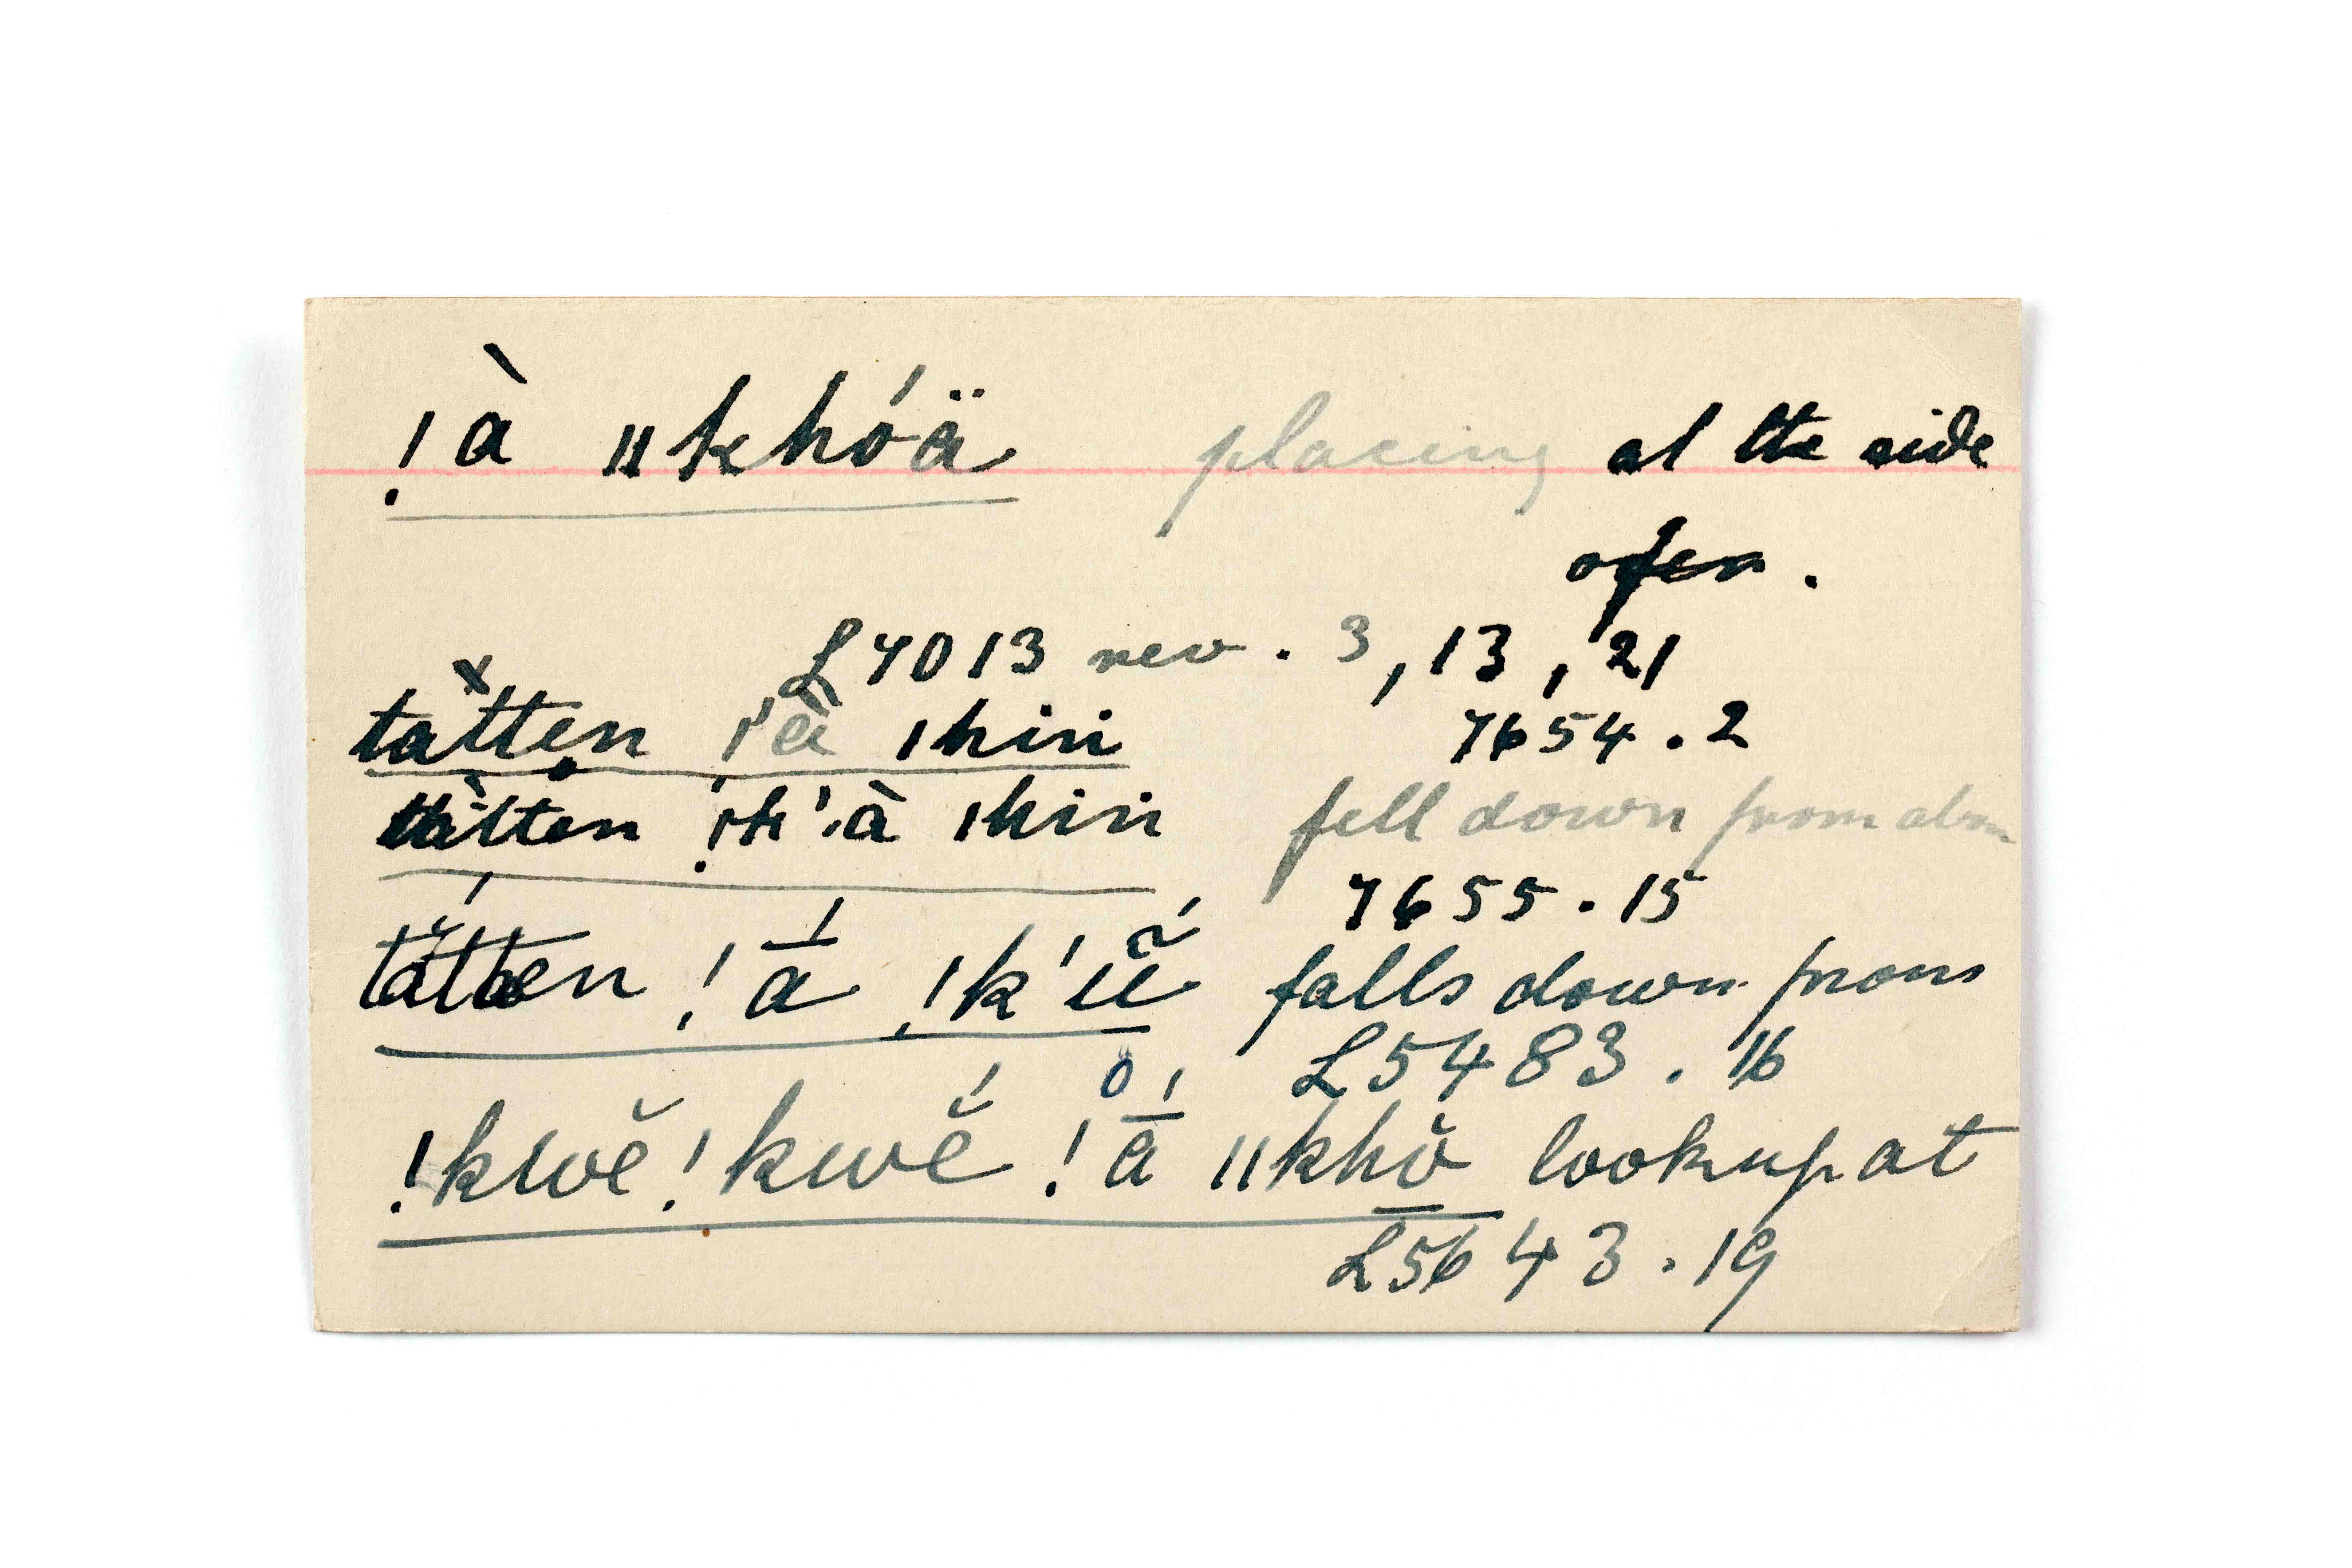 !à ǁkhóä placing at the side
of
L4013 rev. 3, 13, 21
tàtten !'à ǀhiri 7654.2
tàtten !k'à ǀhiri fell down from
7655.15
tatten !ā́ !k'ü falls down from
L5483.16
!kwĕ !kwĕ́ !ā́ ǁkhŏ look up at
L5643.19